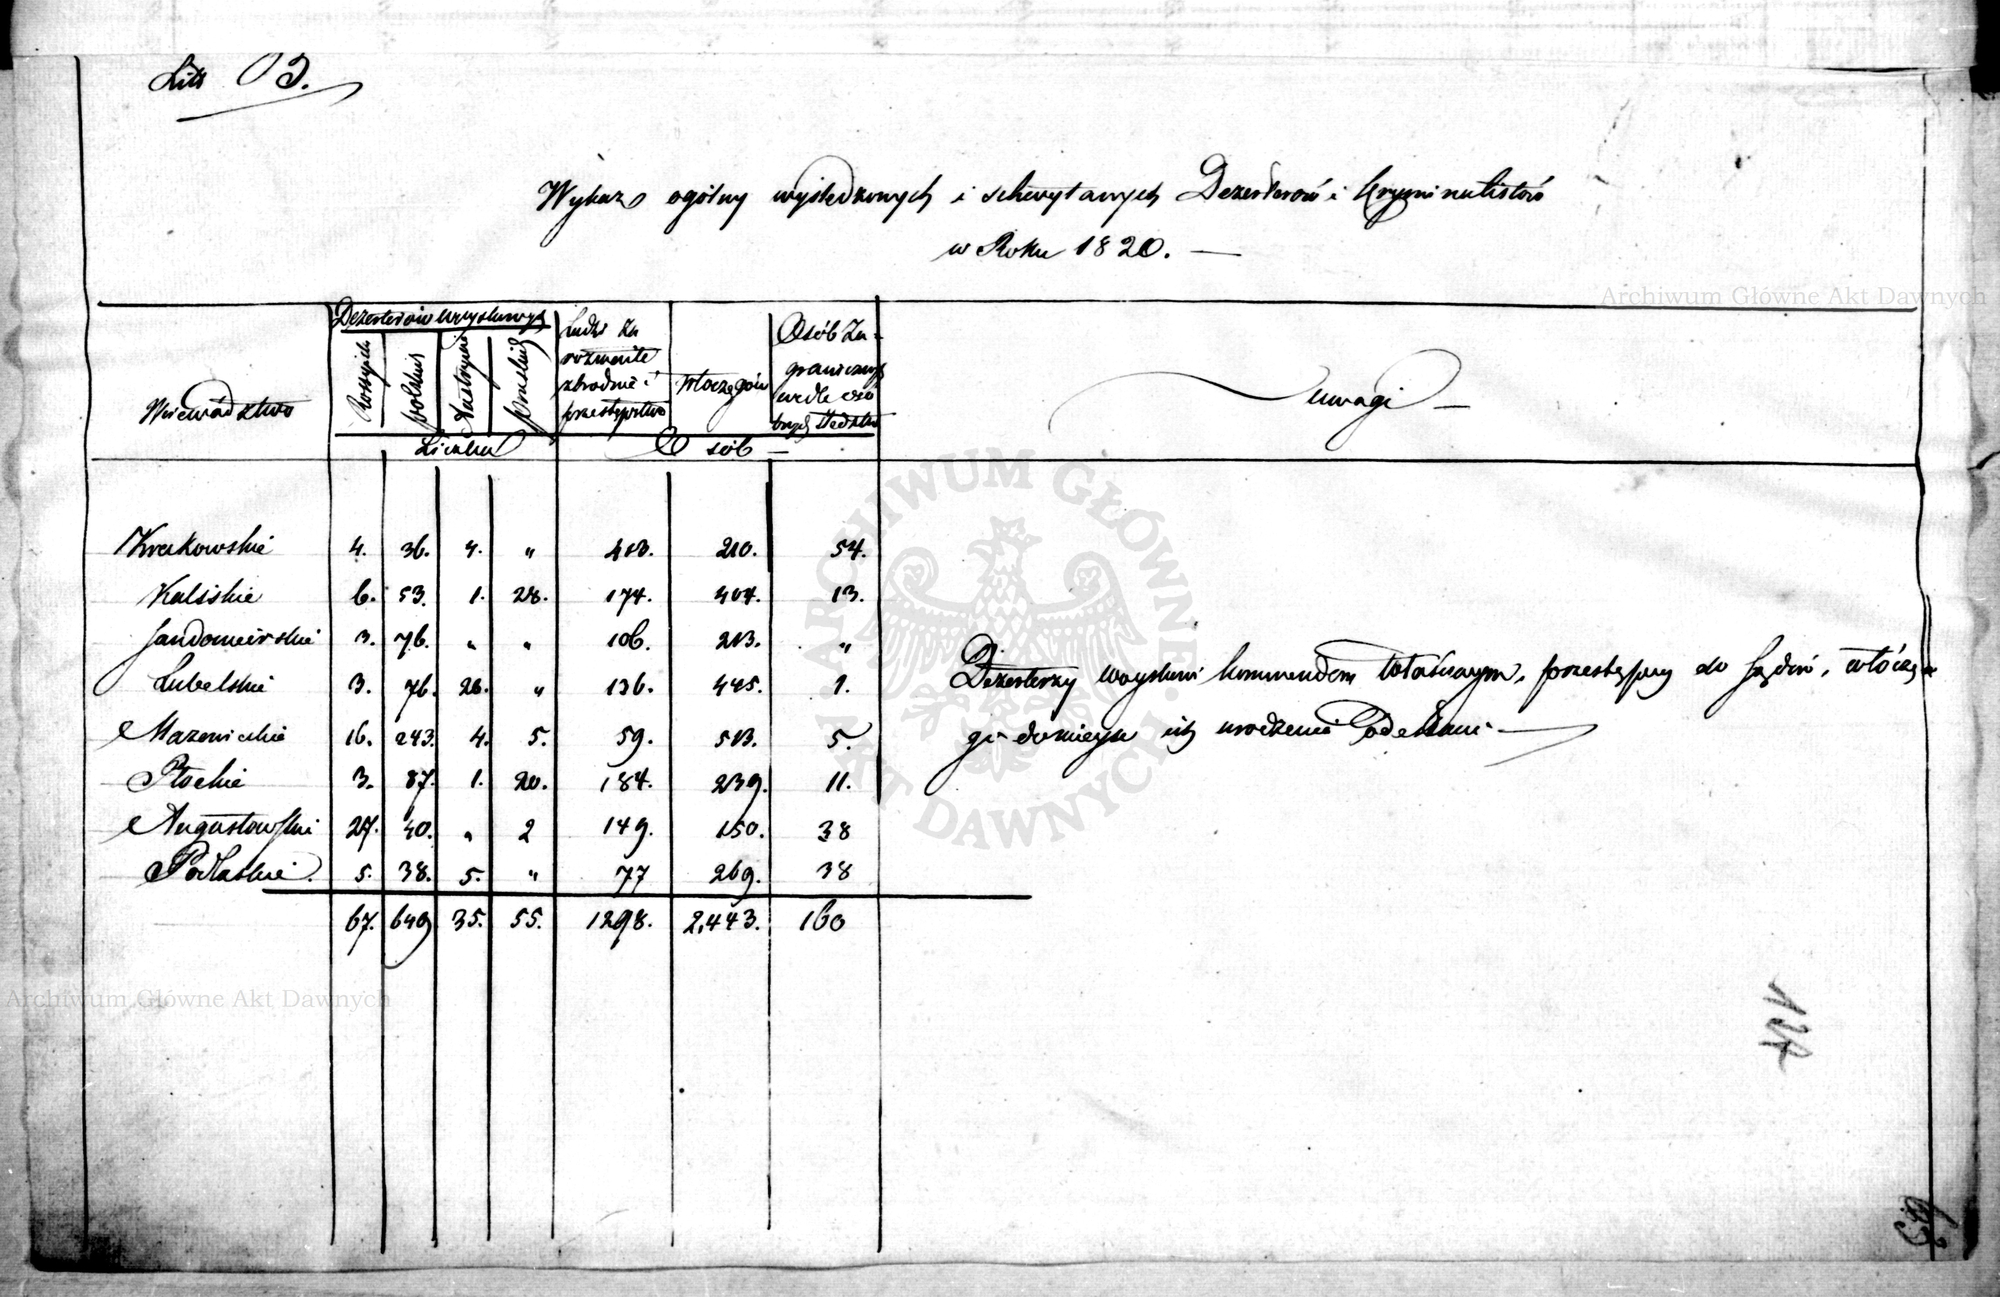 Litt B.
Wykaz ogólny wyśledzonych i schwytanych Dezerterów i Kryminalistów
w Roku 1820. —
Województwo
Dezerterów woyskowych
Rossyisk
polskich
Austryac
pruskich
Liczba
Ludzi za
rozmaite
zbrodnie i
przestępstwa
Włóczęgów
Osób za-
granicznych
wedle
Osób —
Uwagi —
Krakowskie 4. 36. 4. " 413. 210. 54.
Kaliskie 6. 53. 1. 28. 174. 404. 13.
Sandomierskie 3. 76. " " 106. 213. "
Lubelskie 3. 76. 20. " 136. 445. 1.
Mazowieckie 16. 243. 4. 5. 59. 513. 5.
Płockie 3. 87. 1. 20. 184. 239. 11.
Augustowskie 27. 40. " 2 149. 150. 38
Podlaskie. 5. 38. 5. " 77 269. 38
67. 649 35. 55. 1298. 2,443. 160
Dezerterzy woyskowi kommendom właściwym, przestępcy do Sądów, włóczę-
gi do mieysc ich urodzenia Odesłani —
127
Archiwum Główne Akt Dawnych
Archiwum Główne Akt Dawnych
ARCHIWUM GŁÓWNE AKT DAWNYCH